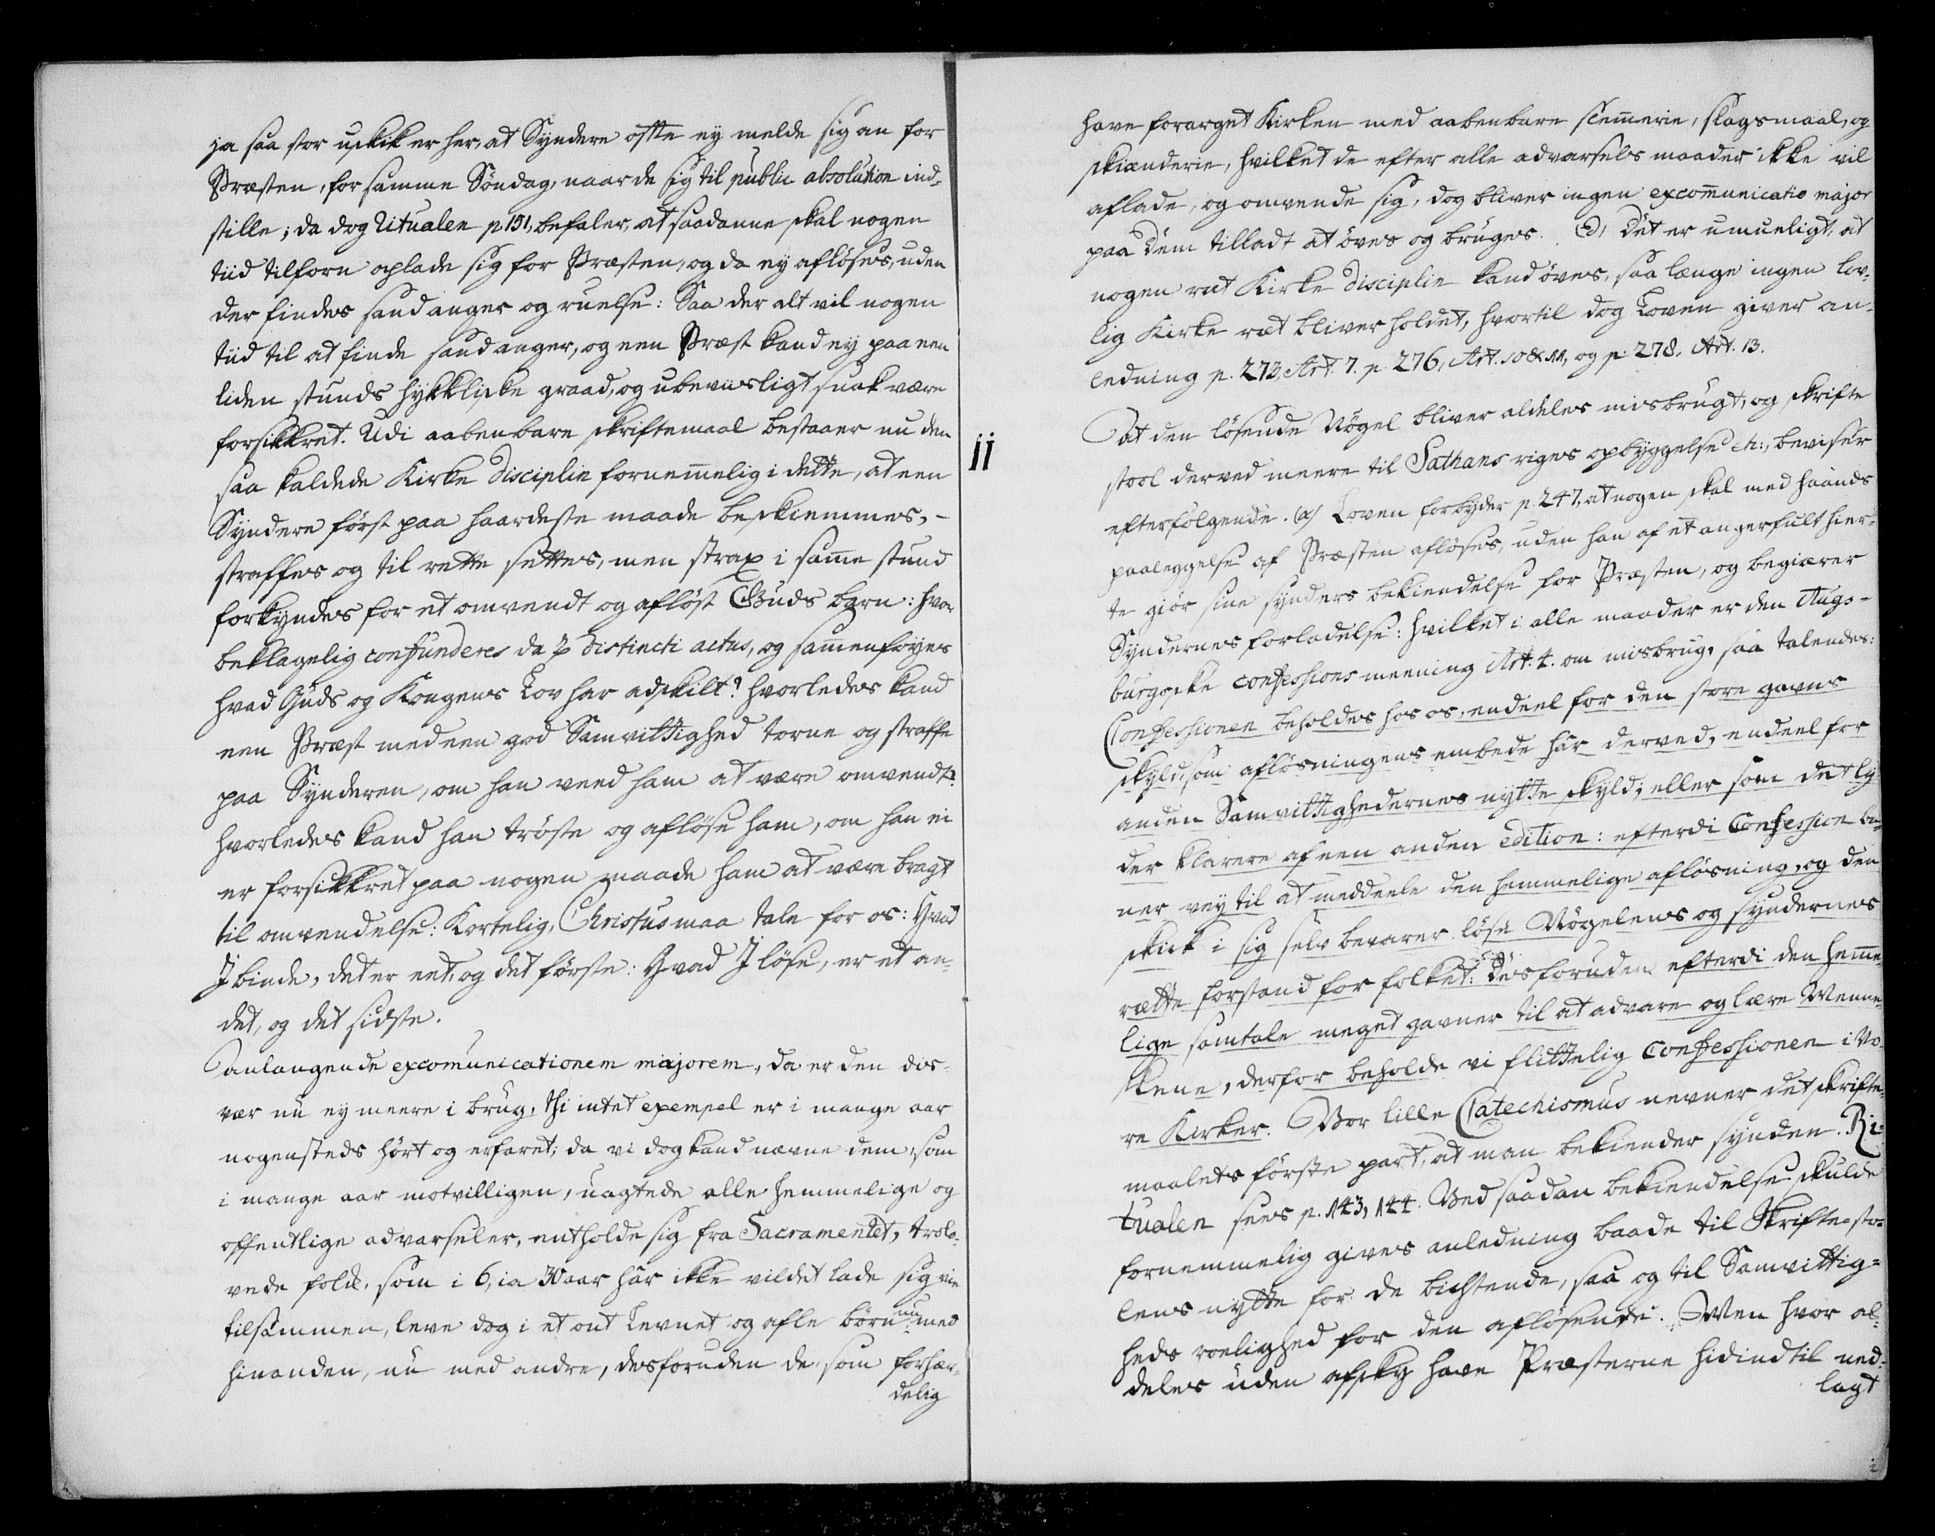 ja saa stor uskik er her, at Syndere ofte ey melde sig an for
Præsten, for samme Søndag, naar de sig til public absolution ind-
stille; da dog Ritualen p. 151, befaler, at saadanne skal nogen
tiid tilforn oplade sig for Præsten, og da ey afløses, uden
der findes sand anger og ruelse: Saa der alt vil nogen
tiid til at finde sand anger, og een Præst kand ey paa een
liden stunds hykkelske graad, og ubeviisligt snak være
forsikkret. Udi aabenbare skriftemaal bestaaer nu den
saa kaldede Kirke Disciplin fornemmelig i dette, at een
Syndere først paa haardeste maade beskiemmes, -
straffes og til rette settes, men strax i samme stund
forkyndes for et omvendt og afløst Guds barn: hvor
beklagelig confunderes da 2 distincti actus, og sammenføyes
hvad Guds og Kongens Lov har adskilt? hvorledes kand
een Præst med een god Samvittighed torne og straffe
paa Synderen, om han veed ham at være omvendt?
hvorledes kand han trøste og afløse ham, om han ei
er forsikkret paa nogen maade ham at være bragt
til omvendelse: Kortelig, Christus maa tale for os: Hvad
I binde, det er eet, og det første: Hvad I løse, er et an-
det, og det sidste.
Anlangende excomunicationem majorem, da er den des-
vær nu ey meere i brug, thi intet exempel er i mange aar
nogensteds hørt og erfaret; da vi dog kand nævne dem, som
i mange aar motvilligen, uagtede alle hemmelige og
offentlige advarseler, entholde sig fra Sacramentet, trolo-
vede folck, som i 6, ia 30 aar har ikke vildet lade sig vie
tilsammen, leve dog i et ont Levnet og afle børn nu med
hinanden, nu med andre, desforuden de, som forhær-
delig
11
have forarget Kirken med aabenbare slemmerie, slagsmaal, og
skienderie, hvilket de efter alle advarsels maader ikke vil
aflade, og omvende sig, dog bliver ingen excommunicatio major
paa Dem tilladt at øves og bruges. Det er umueligt, at
nogen ret Kirke Disciplin kand øves, saa længe ingen lov-
lig Kirke ræt bliver holdet, hvortil dog Loven giver an-
ledning p. 273, Art. 7. p. 276, Art. 10 & 11, og p. 278. Art. 13.
At den løsende Nøgel bliver aldeles misbrugt, og skrifte
stool derved meere til Sathans riges opbyggelse etc:, beviser
efterfølgende. (a) Loven forbyder p. 247, at nogen skal med haands
paaleggelse af Præsten afløses, uden han af et angerfult hier-
te giør sine synders bekiendelse for Præsten, og begiærer
Syndernes forladelse: hvilket i alle maader er den Augs-
burgske confessions meening Art. 4. om misbrug, saa talendes:
Confessionen beholdes hos os, endeel for den store gavns
skyld, som afløsningens embede har derved, endeel for
anden Samvittighedernes nytte skyld; eller som det ly-
der klarere af een anden edition: efterdi Confession ba-
ner vey til at meddeele den hemmelige afløsning, og den
skick i sig selv bevarer løse Nøgelens og syndernes
rætte forstand for folket: Desforuden efterdi den hemme-
lige samtale meget gavner til at advare og lære Menne-
skene, derfor beholde vi flittelig Confessionen i vo-
re Kirker. Vor lille Catechismus nevner det skrifte-
maalets første part, at man bekiender synden. Ri-
tualen sees p. 143, 144. Ved saadan bekiendelse skulde
fornemmelig gives anledning baade til Skrifte-sto-
lens nytte for de bichtende, saa og til Samvittig-
heds roelighed for den afløsende. Men hvor al-
deles uden afsky have Præsterne hidindtil ned-
lagt